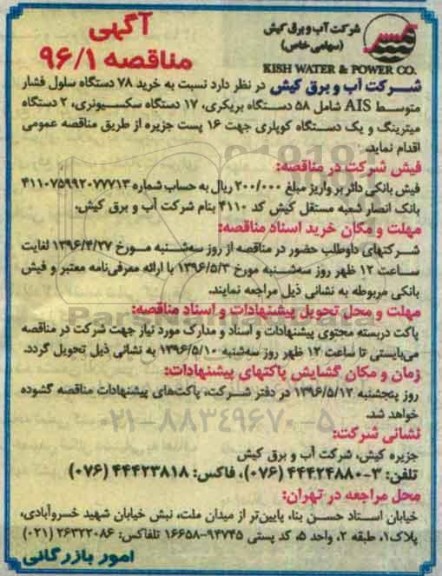 شرکت آب و برق کیش
(سهامی خاص)
KISH WATER & POWER CO.
آگهی
مناقصه ۹۶/۱
شرکت آب و برق کیش در نظر دارد نسبت به خرید ۷۸ دستگاه سلول فشار
متوسط AIS شامل ۵۸ دستگاه بریکری، ۱۷ دستگاه سکسیونری، ۲ دستگاه
میترینگ و یک دستگاه کوپلری جهت ۱۶ پست جزیره از طریق مناقصه عمومی
اقدام نماید.
فیش شرکت در مناقصه:
فیش بانکی دائر بر واریز مبلغ ۲۰۰/۰۰۰ ریال به حساب شماره ۴۱۱۰۷۵۹۹۲۰۷۷۷۱۳
بانک انصار شعبه مستقل کیش کد ۴۱۱۰ بنام شرکت آب و برق کیش.
مهلت و مکان خرید اسناد مناقصه:
شرکتهای داوطلب حضور در مناقصه از روز سه‌شنبه مورخ ۱۳۹۶/۴/۲۷ لغایت
ساعت ۱۲ ظهر روز سه‌شنبه مورخ ۱۳۹۶/۵/۳ با ارائه معرفی‌نامه معتبر و فیش
بانکی مربوطه به نشانی ذیل مراجعه نمایند.
مهلت و محل تحویل پیشنهادات و اسناد مناقصه:
پاکت دربسته محتوی پیشنهادات و اسناد و مدارک مورد نیاز جهت شرکت در مناقصه
می‌بایستی تا ساعت ۱۲ ظهر روز سه‌شنبه ۱۳۹۶/۵/۱۰ به نشانی ذیل تحویل گردد.
زمان و مکان گشایش پاکتهای پیشنهادات:
روز پنجشنبه ۱۳۹۶/۵/۱۲ در دفتر شرکت، پاکت‌های پیشنهادات مناقصه گشوده
خواهد شد.
۰۲۱-۸۸۳۴۹۶۷۰-۵
نشانی شرکت:
جزیره کیش، شرکت آب و برق کیش
تلفن: ۳-۴۴۴۲۴۸۸۰ (۰۷۶)، فاکس: ۴۴۴۲۳۸۱۸ (۰۷۶)
محل مراجعه در تهران:
خیابان استاد حسن بنا، پایین‌تر از میدان ملت، نبش خیابان شهید خسروآبادی،
پلاک۱، طبقه ۲، واحد ۵، کد پستی ۹۴۷۴۵-۱۶۶۵۸ تلفاکس: ۲۶۳۲۲۰۸۶ (۰۲۱)
امور بازرگانی